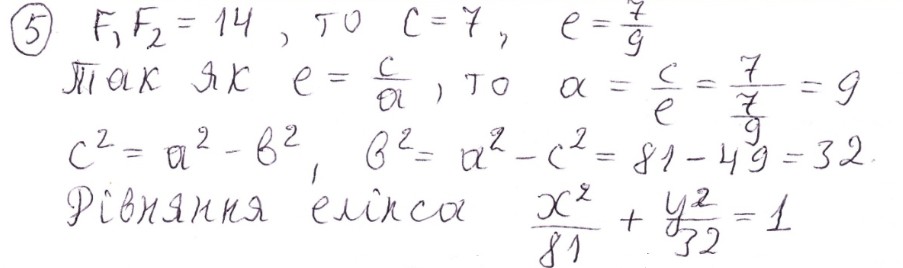 5 F₁F₂ = 14, то c = 7, e = 7/9
Так як e = c/a, то a = c/e = 7/(7/9) = 9
c² = a² - в², в² = a² - c² = 81 - 49 = 32.
Рівняння еліпса x²/81 + y²/32 = 1